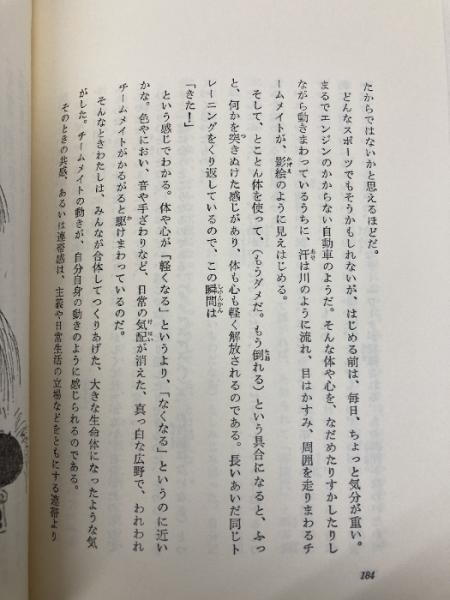 たからではないかと思えるほどだ。
どんなスポーツでもそうかもしれないが、はじめる前は、毎日、ちょっと気分が重い。
まるでエンジンのかからない自動車のようだ。そんな体や心を、なだめたりすかしたりし
ながら動きまわっているうちに、汗は川のように流れ、目はかすみ、周囲を走りまわるチ
ームメイトが、影絵のように見えはじめる。
そして、とことん体を使って、(もうダメだ。もう倒れる)という具合になると、ふっ
と、何かを突きぬけた感じがあり、体も心も軽く解放されるのである。長いあいだ同じト
レーニングをくり返しているので、この瞬間は
「きた!」
という感じでわかる。体や心が「軽くなる」というより、「なくなる」というのに近い
かな。色やにおい、音や手ざわりなど、日常の気配が消えた、真っ白な広野で、われわれ
チームメイトがかるがると駆けまわっているのだ。
そんなときわたしは、みんなが合体してつくりあげた、大きな生命体になったような気
がした。チームメイトの動きが、自分自身の動きのように感じられるのである。
そのときの共感、あるいは連帯感は、主義や日常生活の立場などをともにする連帯より
184